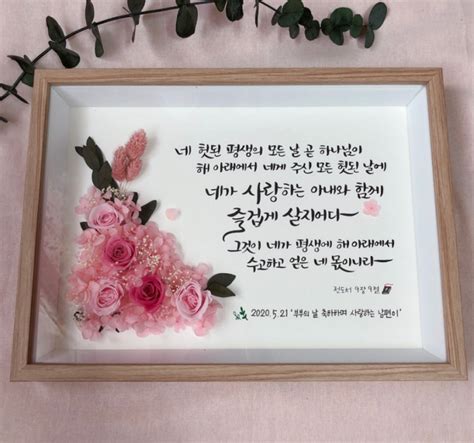 네 헛된 평생의 모든 날 곧 하나님이
해 아래에서 네게 주신 모든 헛된 날에
네가 사랑하는 아내와 함께
즐겁게 살지어다
그것이 네가 평생에 해 아래에서
수고하고 얻은 네 몫이니라
전도서 9장 9절
2020.5.21 '부부의 날 축하하며 사랑하는 남편이'